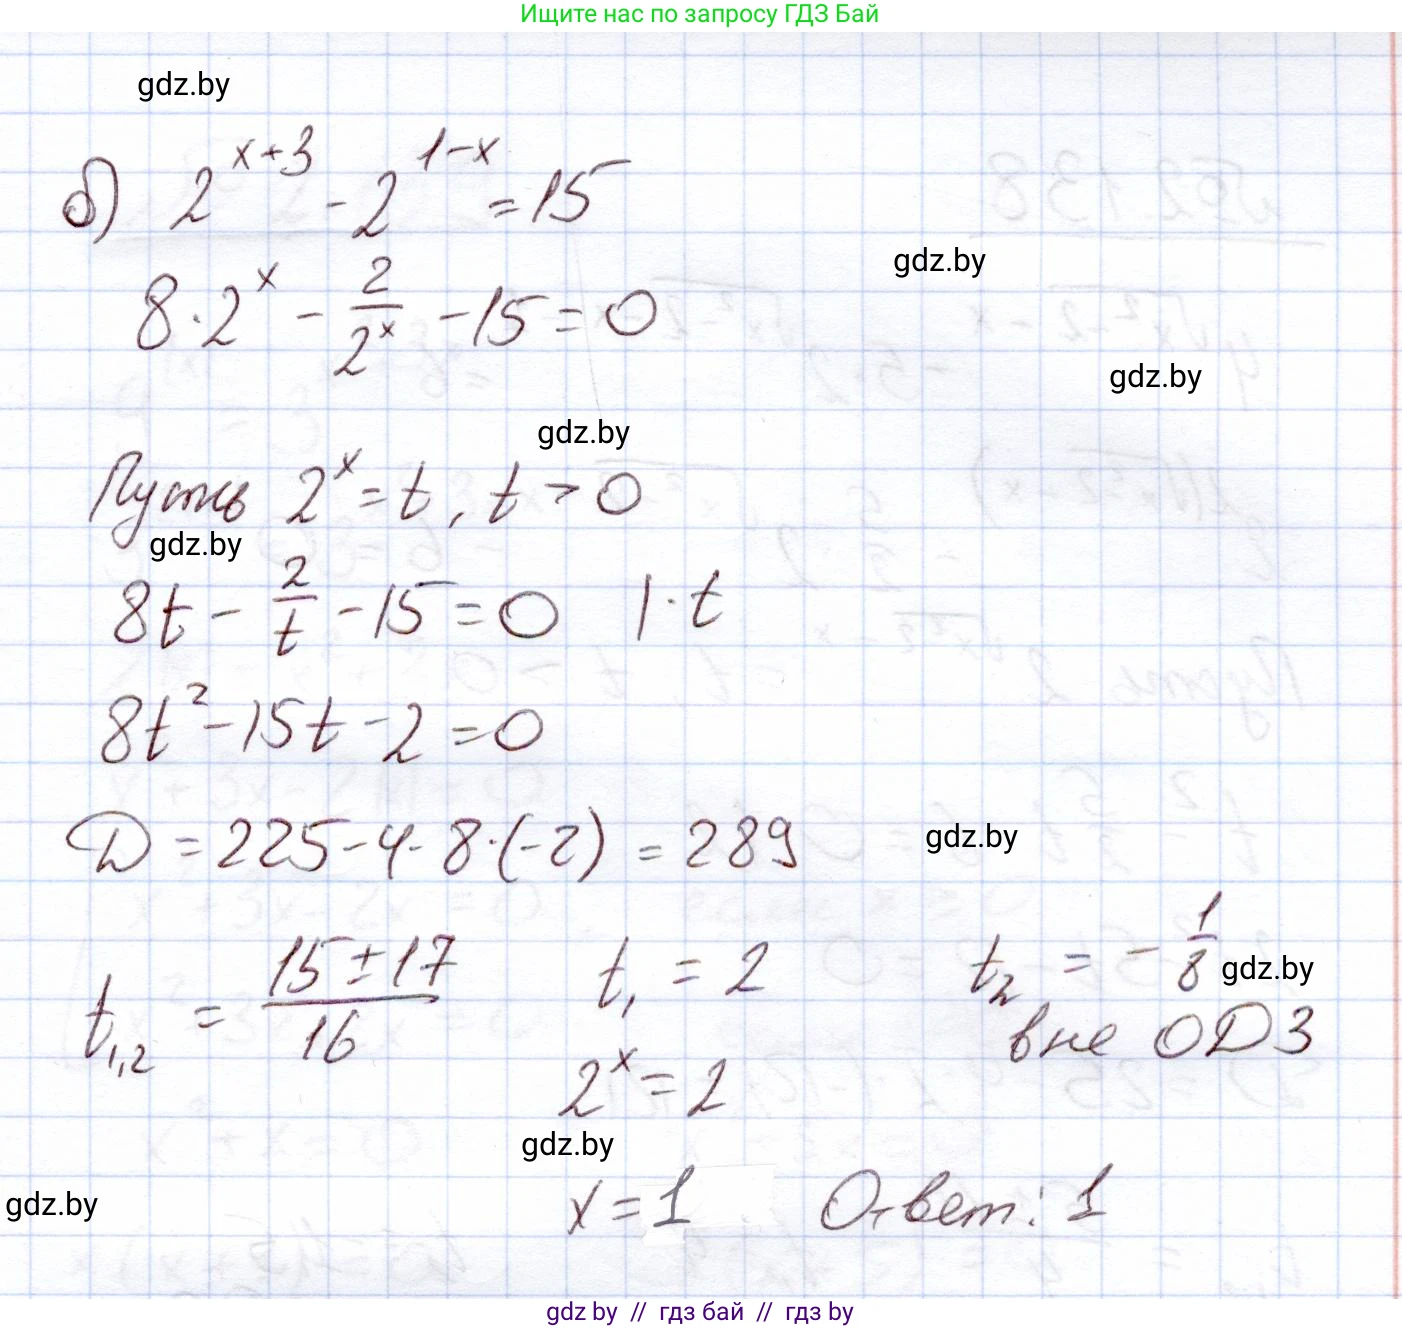 Ищите нас по запросу ГДЗ Бай
gdz.by
б) 2^{x+3} - 2^{1-x} = 15
gdz.by
8·2^x - 2/2^x - 15 = 0
gdz.by
gdz.by
Пусть 2^x = t, t > 0
gdz.by
8t - 2/t - 15 = 0 |·t
8t² - 15t - 2 = 0
D = 225 - 4·8·(-2) = 289
gdz.by
t_{1,2} = (15 ± 17)/16 t_1 = 2 t_2 = -1/8
gdz.by
вне ОДЗ
2^x = 2
gdz.by
gdz.by
x = 1 Ответ: 1
gdz.by // гдз бай // гдз by